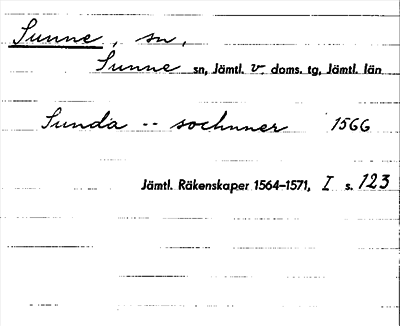 Sunne, sn,
Sunne sn, Jämtl. v. doms. tg, Jämtl. län
Sunda -- sochnner 1566
Jämtl. Räkenskaper 1564–1571, I s. 123